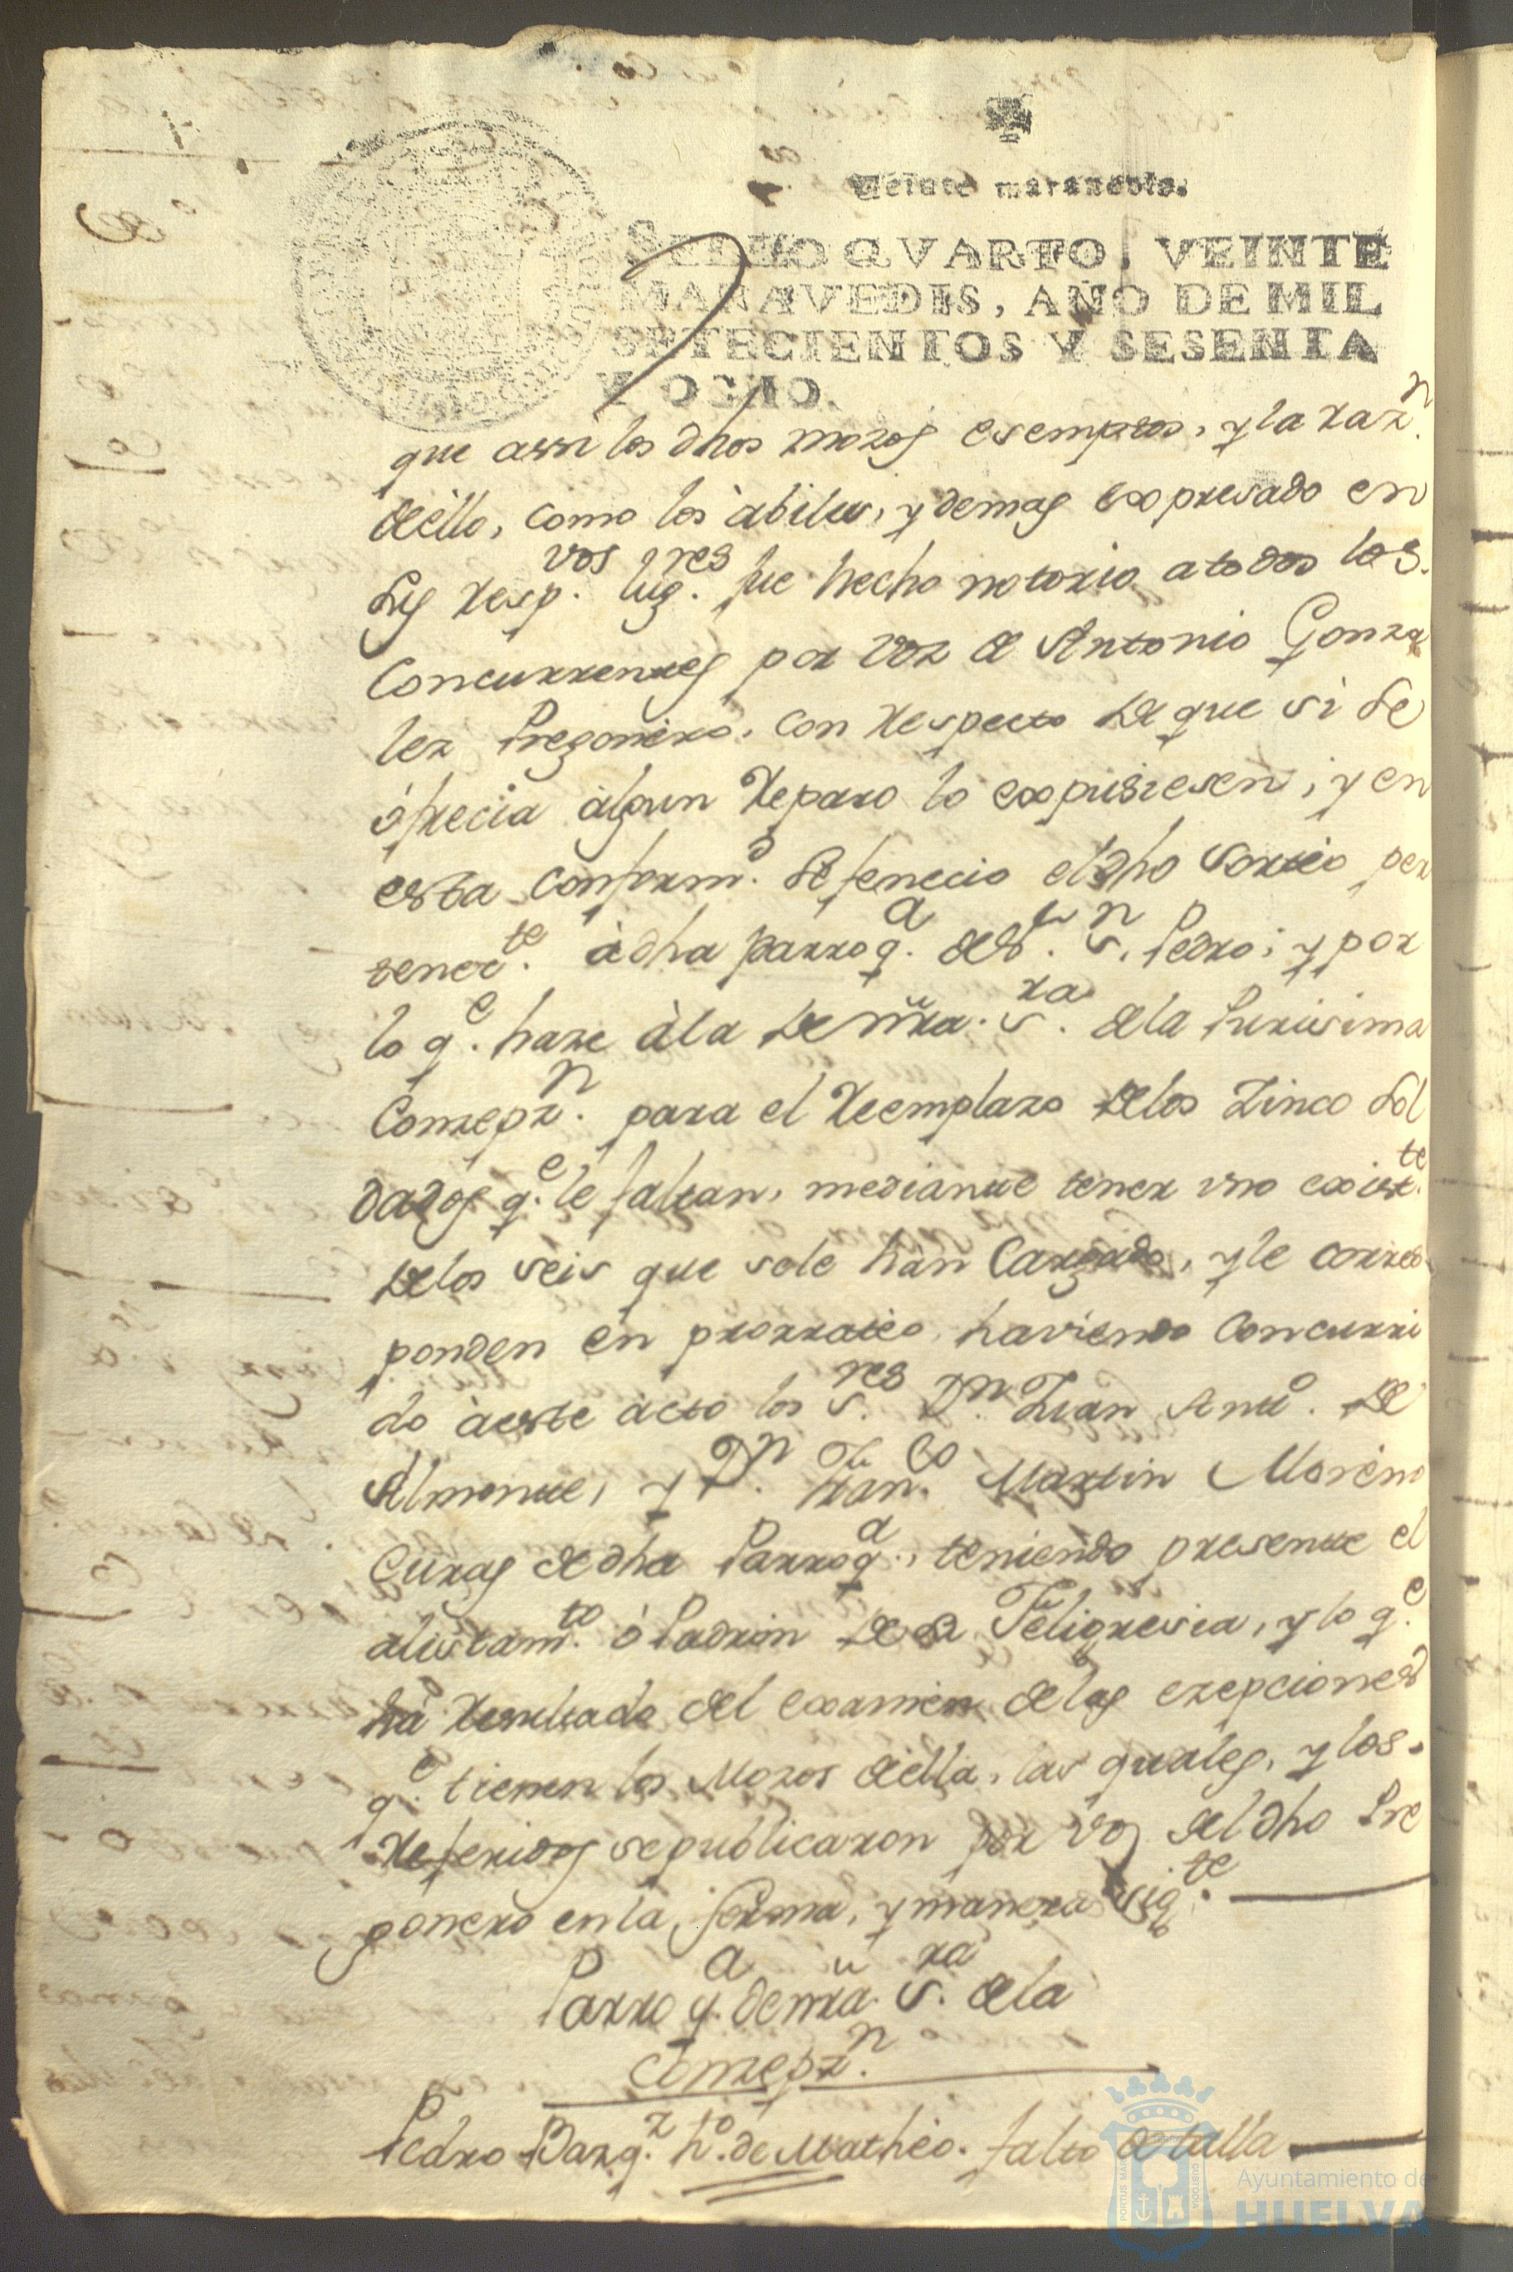 Veinte maravedis.
SELLO QVARTO, VEINTE
MARAVEDIS, AÑO DE MIL
SETECIENTOS Y SESENTA
Y OCHO.
que assi los dhos mozos esemptos, y la razn.
de èllo, como los àbiles, y demas expresado en
sus respvos. lugres. fue hecho notorio a todos los
Concurrentes por voz de Antonio Gonza
lez Pregonero, con respecto de que si se
ófrecia àlgun reparo lo expusiesen; y en
esta conformd. se fenecio el dho sorteo per
tenecte. à dha parroqa. de Sr. Sn. Pedro; y por
lo qe. haze àla de ñra. Sra. de la Purisima
Conzepzn. para el reemplazo de los zinco sol
dados qe. le faltan, mediante tener uno existte.
de los seis que se le hàn Cargado, y le corres
ponden en prorrateo, haviendo Concurri
do àeste àcto los Sres. Dn. Juan Anto. de
Almonte, y Dn. Franco. Martin Moreno
Curas de dha Parroqa., teniendo presente el
alistamto. ò Padron de su Feligresia, y lo qe.
hà resultado del examen de las ezepciones
qe. tienen los Mozos de ella, las quales, y los
referidos se publicaron por voz del dho Pre
gonero en la forma, y manera sigte.
Parroqa. de ñra. Sra. de la
Conzepzn.
Pedro Barqz. ho. de Mathèo. falto de talla
Ayuntamiento de
HUELVA